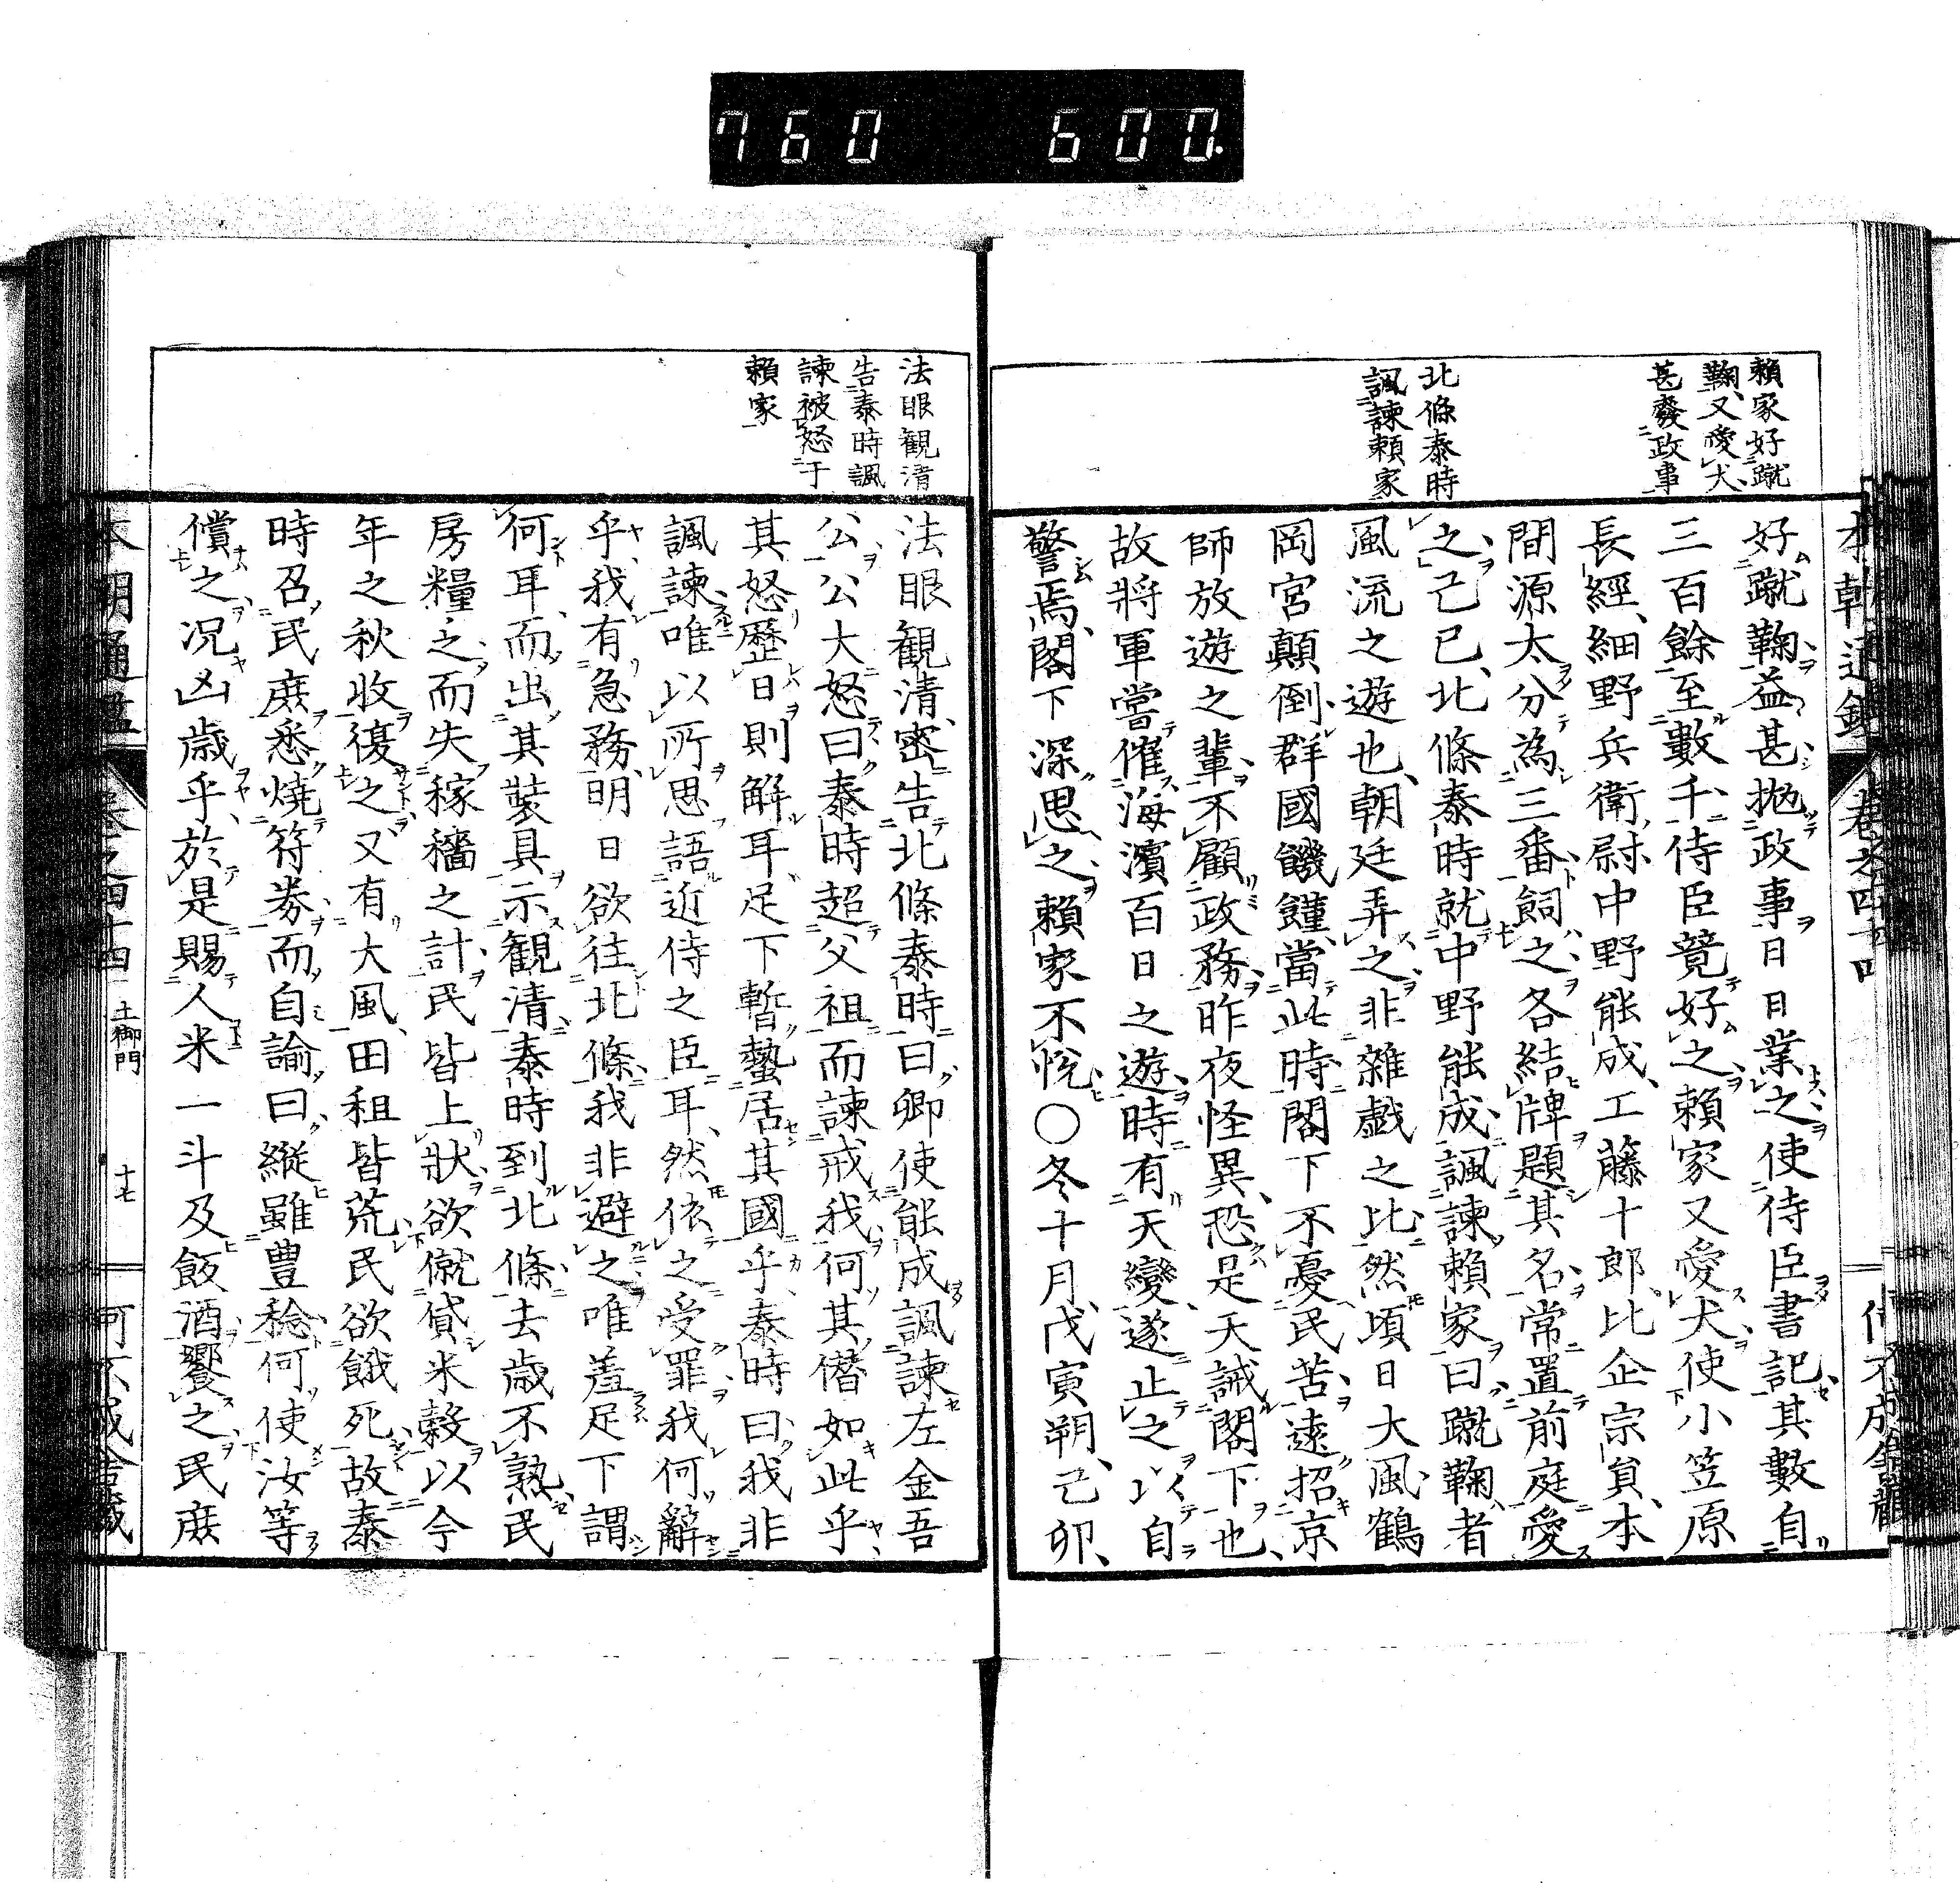 760 600.
賴家好蹴
鞠又愛犬
甚廢政事
北條泰時
諷諫賴家
好蹴鞠益甚抛政事日日業之使侍臣書記其數自
三百餘至數千侍臣競好之賴家又愛犬使小笠原
長經細野兵衛尉中野能成工藤十郎比企宗員本
間源太分為三番飼之各結牌題其名常置前庭愛
之己巳北條泰時就中野能成諷諫賴家曰蹴鞠者
風流之遊也朝廷弄之非雜戯之比然頃日大風鶴
岡宮顛倒群國饑饉當此時閣下不憂民苦遠招京
師放遊之輩不顧政務昨夜怪異恐是天誡閣下也
故將軍嘗催海濱百日之遊時有天變遂止之以自
警焉閣下深思之賴家不悅〇冬十月戊寅朔己卯
法眼観清
告泰時諷
諫被怒于
賴家
法眼観清密告北條泰時曰卿使能成諷諫左金吾
公公大怒曰泰時超父祖而諫戒我何其僭如此乎
其怒歷日則解耳足下暫蟄居其國乎泰時曰我非
諷諫唯以所思語近侍之臣耳然依之受罪我何辭
乎我有急務明日欲往北條我非避之唯羞足下謂
何耳而出其裝具示観清泰時到北條去歳不熟民
房糧之而失稼穡之計民皆上狀欲僦貸米穀以今
年之秋收復之又有大風田租皆荒民欲餓死故泰
時召民庶悉燒符券而自諭曰縱雖豊稔何使汝等
償之况凶歳乎於是賜人米一斗及飯酒饗之民庶
本朝通鑑 卷之四十四 土御門 十七